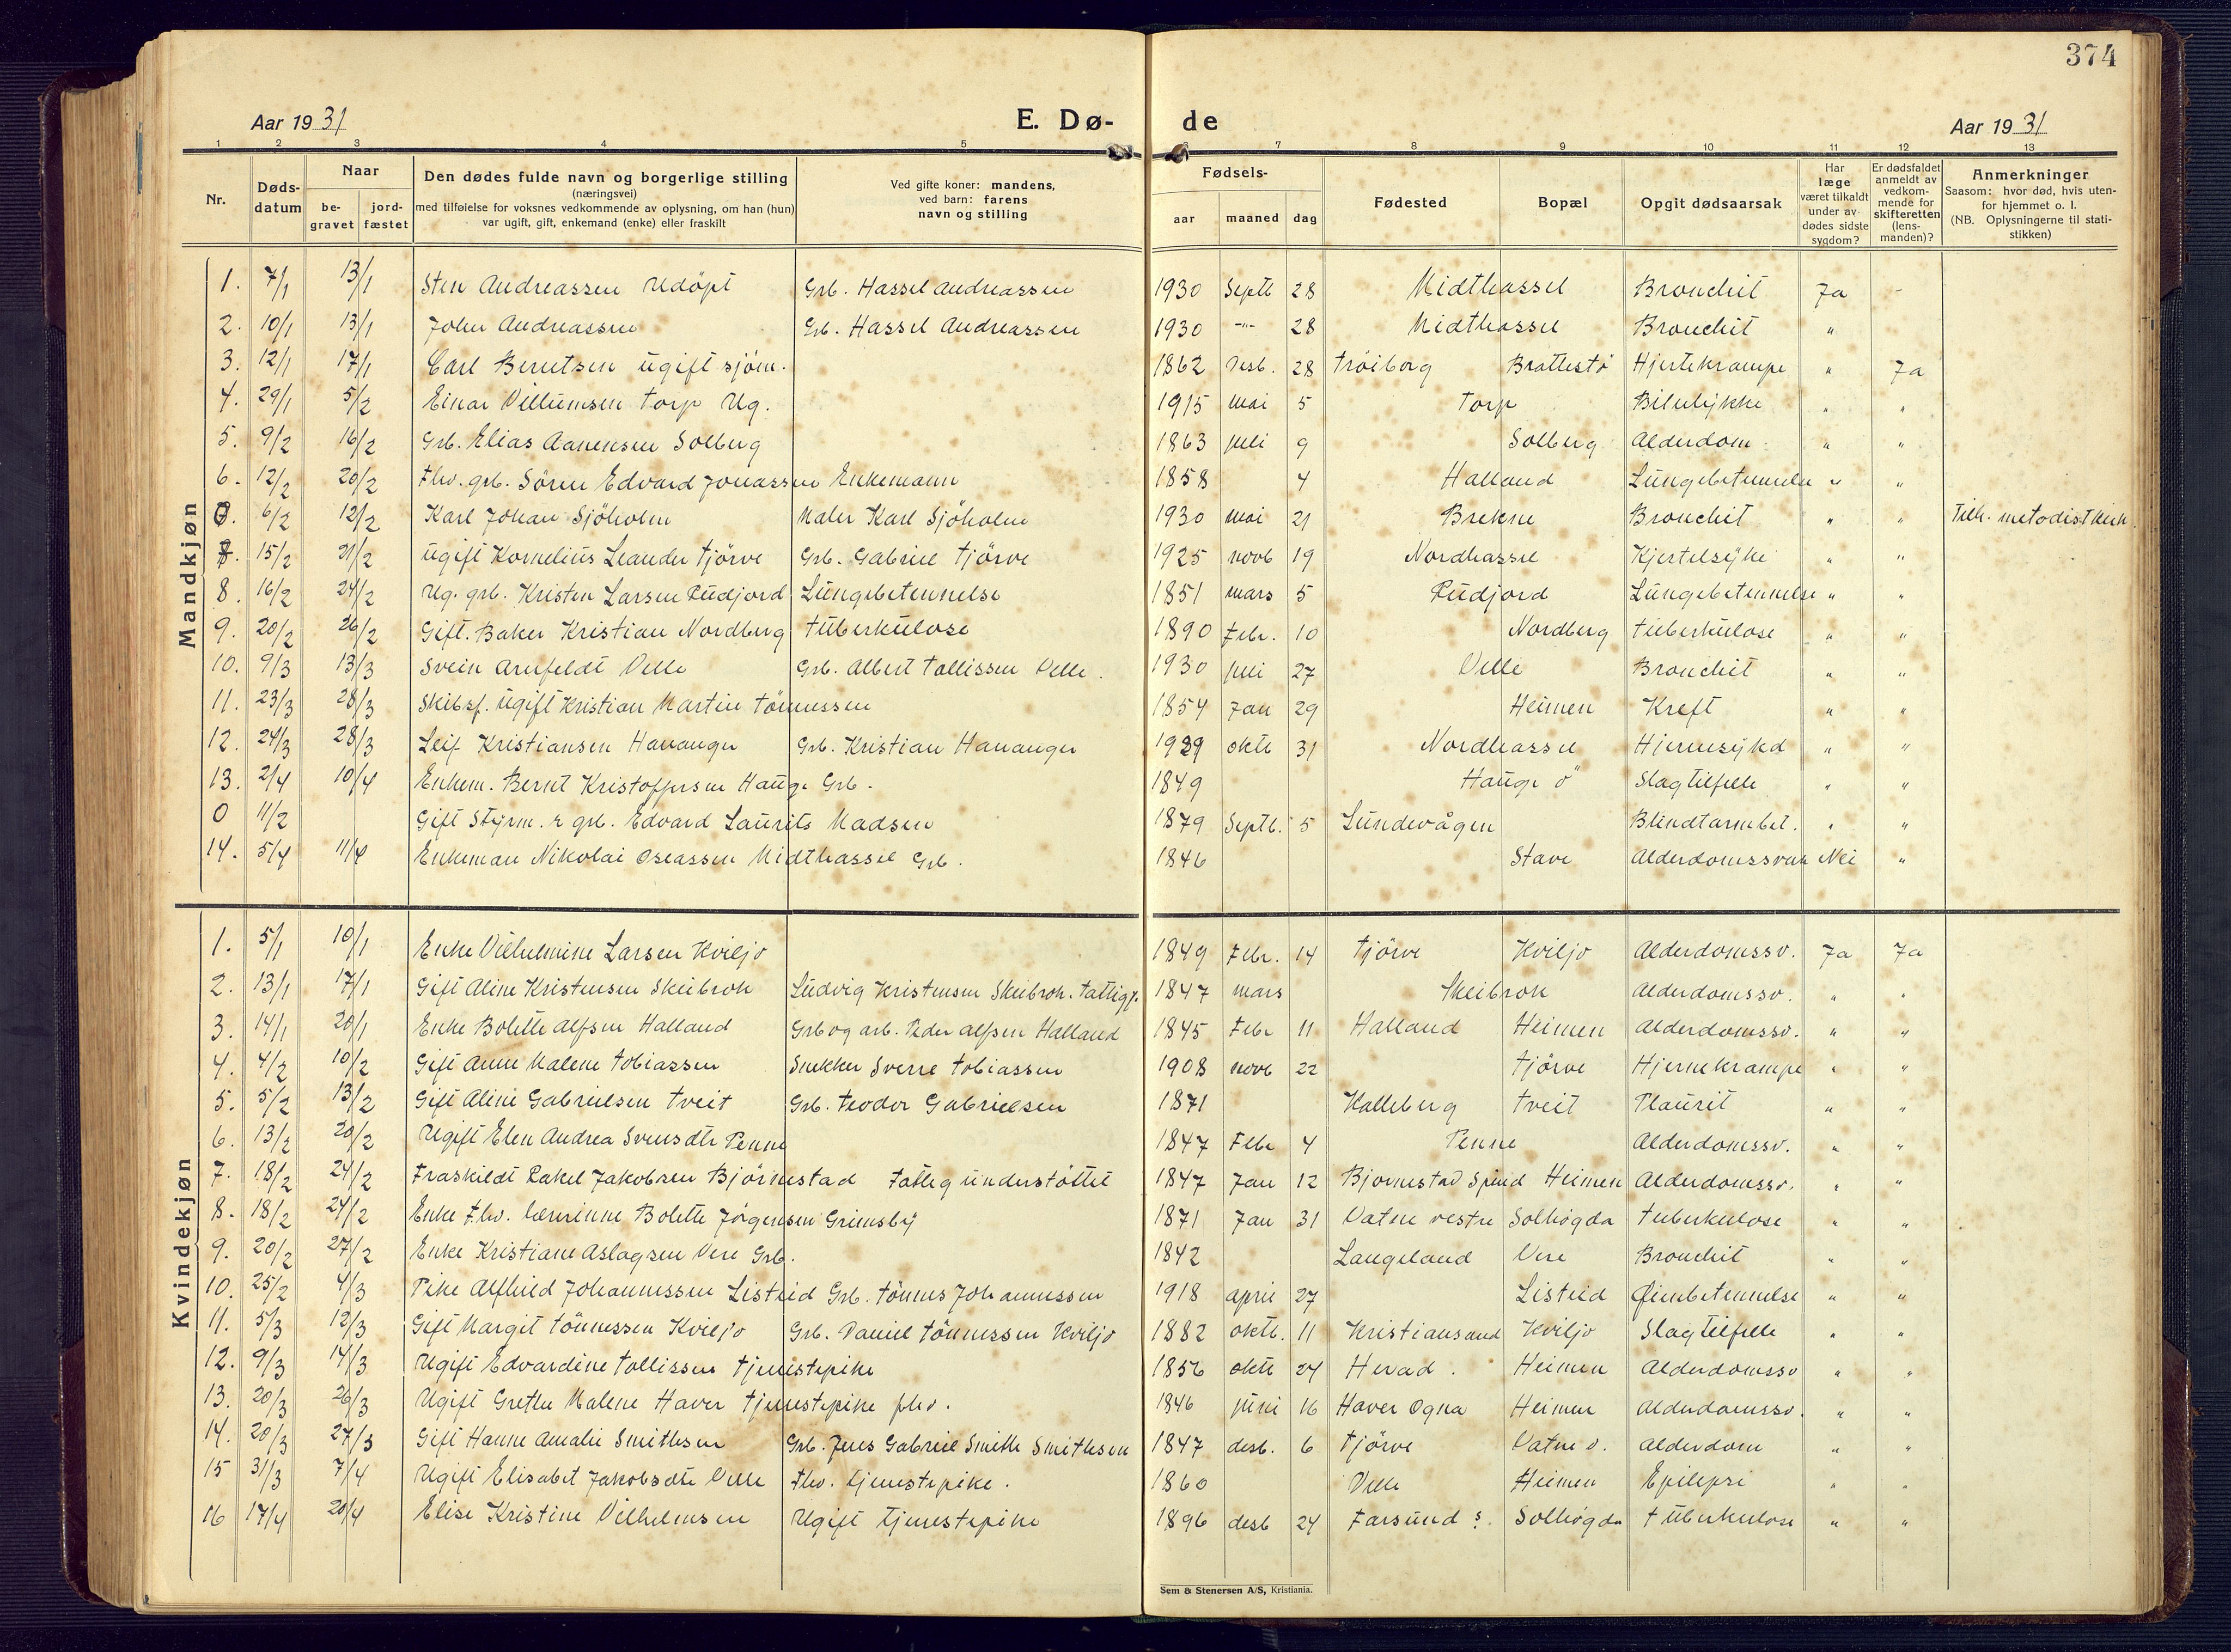 374
Aar 1931 E. Dø- de Aar 1931
1 2 3 4 5 6 7 8 9 10 11 12 13
Nr.
Døds-
datum
Naar
be-
gravet
jord-
fæstet
Den dødes fulde navn og borgerlige stilling
(næringsvei)
med tilføielse for voksnes vedkommende av oplysning, om han (hun)
var ugift, gift, enkemand (enke) eller fraskilt
Ved gifte koner: mandens,
ved barn: farens
navn og stilling
Fødsels-
aar maaned dag
Fødested
Bopæl
Opgit dødsaarsak
Har
læge
været tilkaldt
under av-
dødes sidste
sygdom?
Er dødsfaldet
anmeldt av
vedkom-
mende for
skifteretten
(lens-
manden)?
Anmerkninger
Saasom: hvor død, hvis uten-
for hjemmet o. l.
(NB. Oplysningerne til stati-
stikken)
Mandkjøn
1. 7/1 13/1 Sten Andreassen Udöpt Grb. Hassel Andreassen 1930 Septb 28 Midthassel Bronchit Ja -
2. 10/1 13/1 John Andreassen Grb. Hassel Andreassen 1930 -"- 28 Midthassel Bronchit "
3. 12/1 17/1 Carl Berntsen ugift sjöm. 1862 Desb. 28 Tröiborg Brattestö Hjertekrampe " Ja
4. 29/1 5/2 Einar Villumsen Torp Ug. 1915 mai 5 Torp Bilulykke " "
5. 9/2 16/2 Grb. Elias Aanensen Solberg 1863 juli 9 Solberg Alderdom. " "
6. 12/2 20/2 Fhv. grb. Sören Edvard Jonassen Enkemann 1858 4 Halland Lungebetennelse " "
0. 6/2 12/2 Karl Johan Sjöholm Maler Karl Sjöholm 1930 mai 21 Brekne Bronchit " " Tilh. metodistkirk.
7. 15/2 21/2 Ugift Kornelius Leander Tjörve Grb. Gabriel Tjörve 1925 novb 19 Nordhassel Kjertelsyke " "
8. 16/2 24/2 Ug. grb. Kristen Larsen Rudjord Lungebetennelse 1851 mars 5 Rudjord Lungebetennelse " "
9. 20/2 26/2 Gift. Baker Kristian Nordberg Tuberkulose 1890 Febr. 10 Nordberg Tuberkulose " "
10. 9/3 13/3 Svein Arnfeldt Velle Grb. Albert Tollissen Velle. 1930 juli 27 Velle Bronchit " "
11. 23/3 28/3 Skibsf. ugift Kristian Martin Tönnessen 1854 Jan 29 Heimen Kreft " "
12. 24/3 28/3 Leif Kristiansen Hananger Grb. Kristian Hananger 1929 oktb 31 Nordhassel Hjernesykd " "
13. 2/4 10/4 Enkem. Bernt Kristoffersen Hauge Grb. 1849 Hauge ö Slagtilfelle " "
0 11/2 Gift Styrm. & grb. Edvard Laurits Madsen 1879 Septb. 5 Lundevågen Blindtarmbet. " "
14. 5/4 11/4 Enkeman Nikolai Oseassen Midthassel Grb. 1846 Stave Alderdomssvak Nei "
Kvindekjøn
1. 5/1 10/1 Enke Vilhelmine Larsen Kviljo 1849 Febr. 14 Tjörve Kviljo Alderdomssv. Ja Ja
2. 13/1 17/1 Gift Aline Kristensen Skeibrok Ludvig Kristensen Skeibrok. 1847 mars Skeibrok Alderdomssv. " "
3. 14/1 20/1 Enke Bolette Alfsen Halland Grb og arb. Peder Alfsen Halland 1845 Febr 11 Halland Heimen Alderdomssv. " "
4. 4/2 10/2 Gift Anne Malene Tobiassen Snekker Sverre Tobiassen 1908 novb 22 Tjörve Hjernekrampe " "
5. 5/2 13/2 Gift Aline Gabrielsen Tveit Grb. Teodor Gabrielsen 1871 Kalleberg Tveit Plaurit " "
6. 13/2 20/2 Ugift Elen Andrea Svensdtr Penne 1847 Febr 4 Penne Alderdomssv. " "
7. 18/2 24/2 Fraskildt Rakel Jakobsen Björnestad Fattigunderstöttet 1847 Jan 12 Bjornestad Spind Heimen Alderdomssv. " "
8. 18/2 24/2 Enke f.hv. lærerinne Bolette Jörgensen Grimsby 1871 Jan 31 Vatne vestre Solhögda Tuberkulose " "
9. 20/2 27/2 Enke Kristiane Aslagsen Vere Grb. 1842 Langeland Vere Bronchit " "
10. 25/2 4/3 Pike Alfhild Johannessen Listeid Grb. Tönnes Johannessen 1918 april 27 Listeid Öienbetennelse " "
11. 5/3 12/3 Gift Margit Tönnessen Kviljo Grb. Daniel Tönnessen Kviljo 1882 oktb. 11 Kristiansand Kviljo Slagtilfelle " "
12. 9/3 14/3 Ugift Edvardine Tollissen Tjenestepike 1856 oktb 24 Herad. Heimen Alderdomssv " "
13. 20/3 26/3 Ugift Grethe Malene Haver Tjenestepike fhv. 1846 juni 16 Haver Ogna Heimen Alderdomssv. " "
14. 20/3 27/3 Gift Hanne Amalie Smithsen Grb. Jens Gabriel Smith Smithsen 1847 desb. 6 Tjörve Vatne v. Alderdom " "
15 31/3 7/4 Ugift Elisabet Jakobsdtr Velle Fhv. tjenestepike. 1860 Velle Heimen Epilepsi " "
16 17/4 20/4 Elise Kristine Vilhelmsen Ugift Tjenestepike 1896 desb 24 Farsund s. Solhögda Tuberkulose " "
Sem & Stenersen A/S, Kristiania.